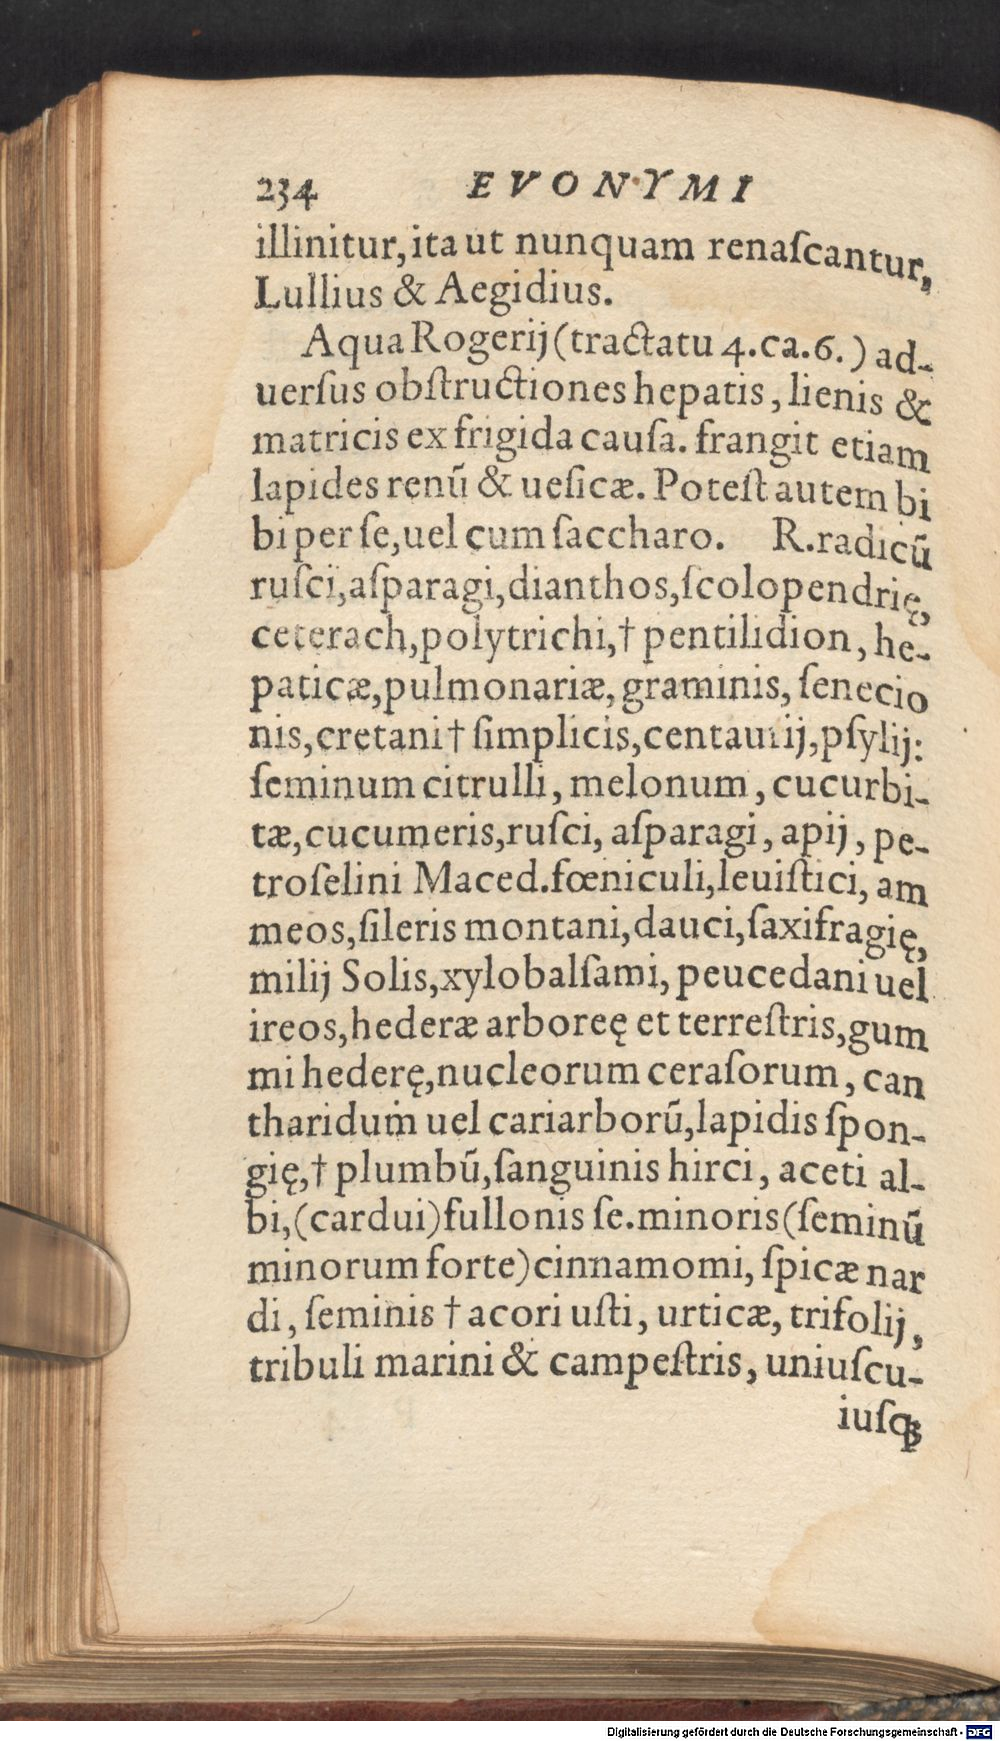 234 EVONYMI
illinitur, ita ut nunquam renaſcantur,
Lullius & Aegidius.
Aqua Rogerij (tractatu 4. ca. 6.) ad-
uerſus obſtructiones hepatis, lienis &
matricis ex frigida cauſa. frangit etiam
lapides renũ & ueſicæ. Poteſt autem bi
bi per ſe, uel cum ſaccharo. R. radicũ
ruſci, aſparagi, dianthos, ſcolopendrię,
ceterach, polytrichi, † pentilidion, he-
paticæ, pulmonariæ, graminis, ſenecio
nis, cretani † ſimplicis, centaurij, pſylij:
ſeminum citrulli, melonum, cucurbi-
tæ, cucumeris, ruſci, aſparagi, apij, pe-
troſelini Maced. fœniculi, leuiſtici, am
meos, ſileris montani, dauci, ſaxifragię,
milij Solis, xylobalſami, peucedani uel
ireos, hederæ arboreę et terreſtris, gum
mi hederę, nucleorum ceraſorum, can
tharidum uel cariarborũ, lapidis ſpon-
gię, † plumbũ, ſanguinis hirci, aceti al-
bi, (cardui) fullonis ſe. minoris (ſeminũ
minorum forte) cinnamomi, ſpicæ nar
di, ſeminis † acori uſti, urticæ, trifolij,
tribuli marini & campeſtris, uniuſcu-
iuſqꝫ
Digitalisierung gefördert durch die Deutsche Forschungsgemeinschaft - DFG